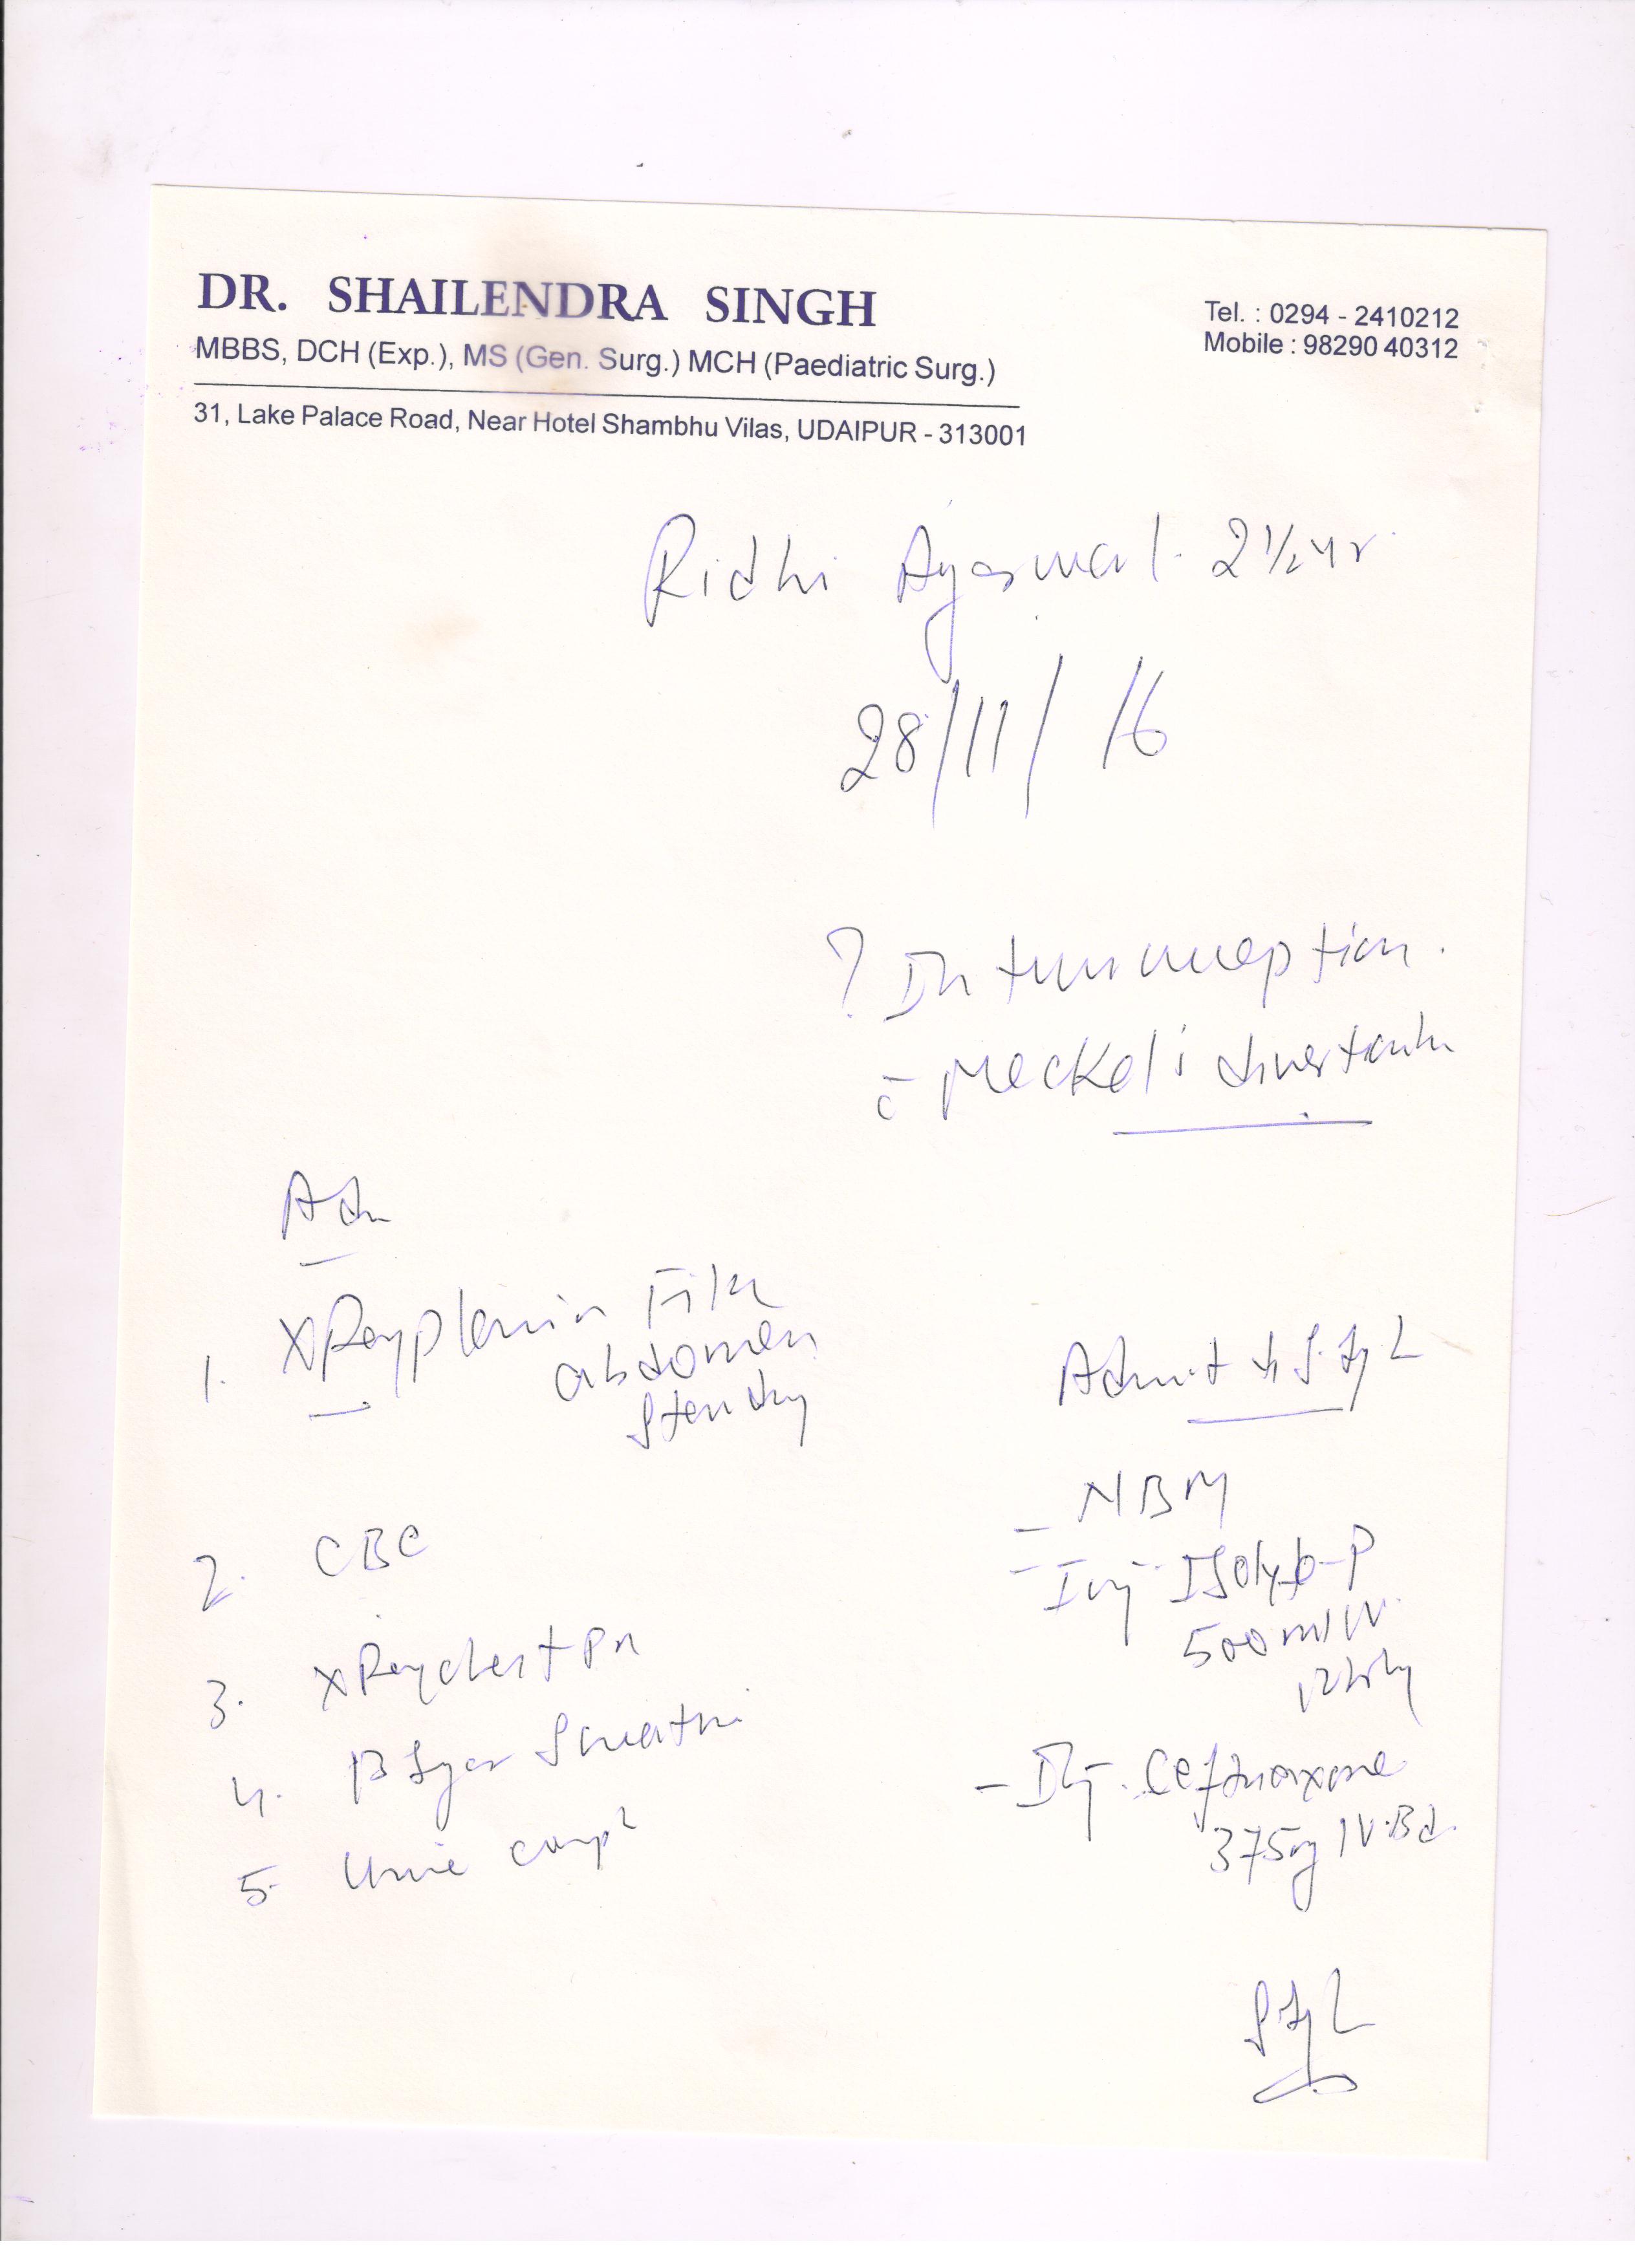 DR. SHAILENDRA SINGH
MBBS, DCH (Exp.), MS (Gen. Surg.) MCH (Paediatric Surg.)
31, Lake Palace Road, Near Hotel Shambhu Vilas, UDAIPUR - 313001
Tel. : 0294 - 2410212
Mobile : 98290 40312
Ridhi Agarwal 2½ yr
28/11/16
? Intussusception.
c̄ Meckel's
Adv
1. X Ray plain Film
abdomen
Standing
2. CBC
3. X Ray chest PA
4. B Sugar
5. Urine
Admit
- NBM
- Inj. Isolyte-P
500 ml IV
- Inj. Ceftriaxone
375mg IV Bd